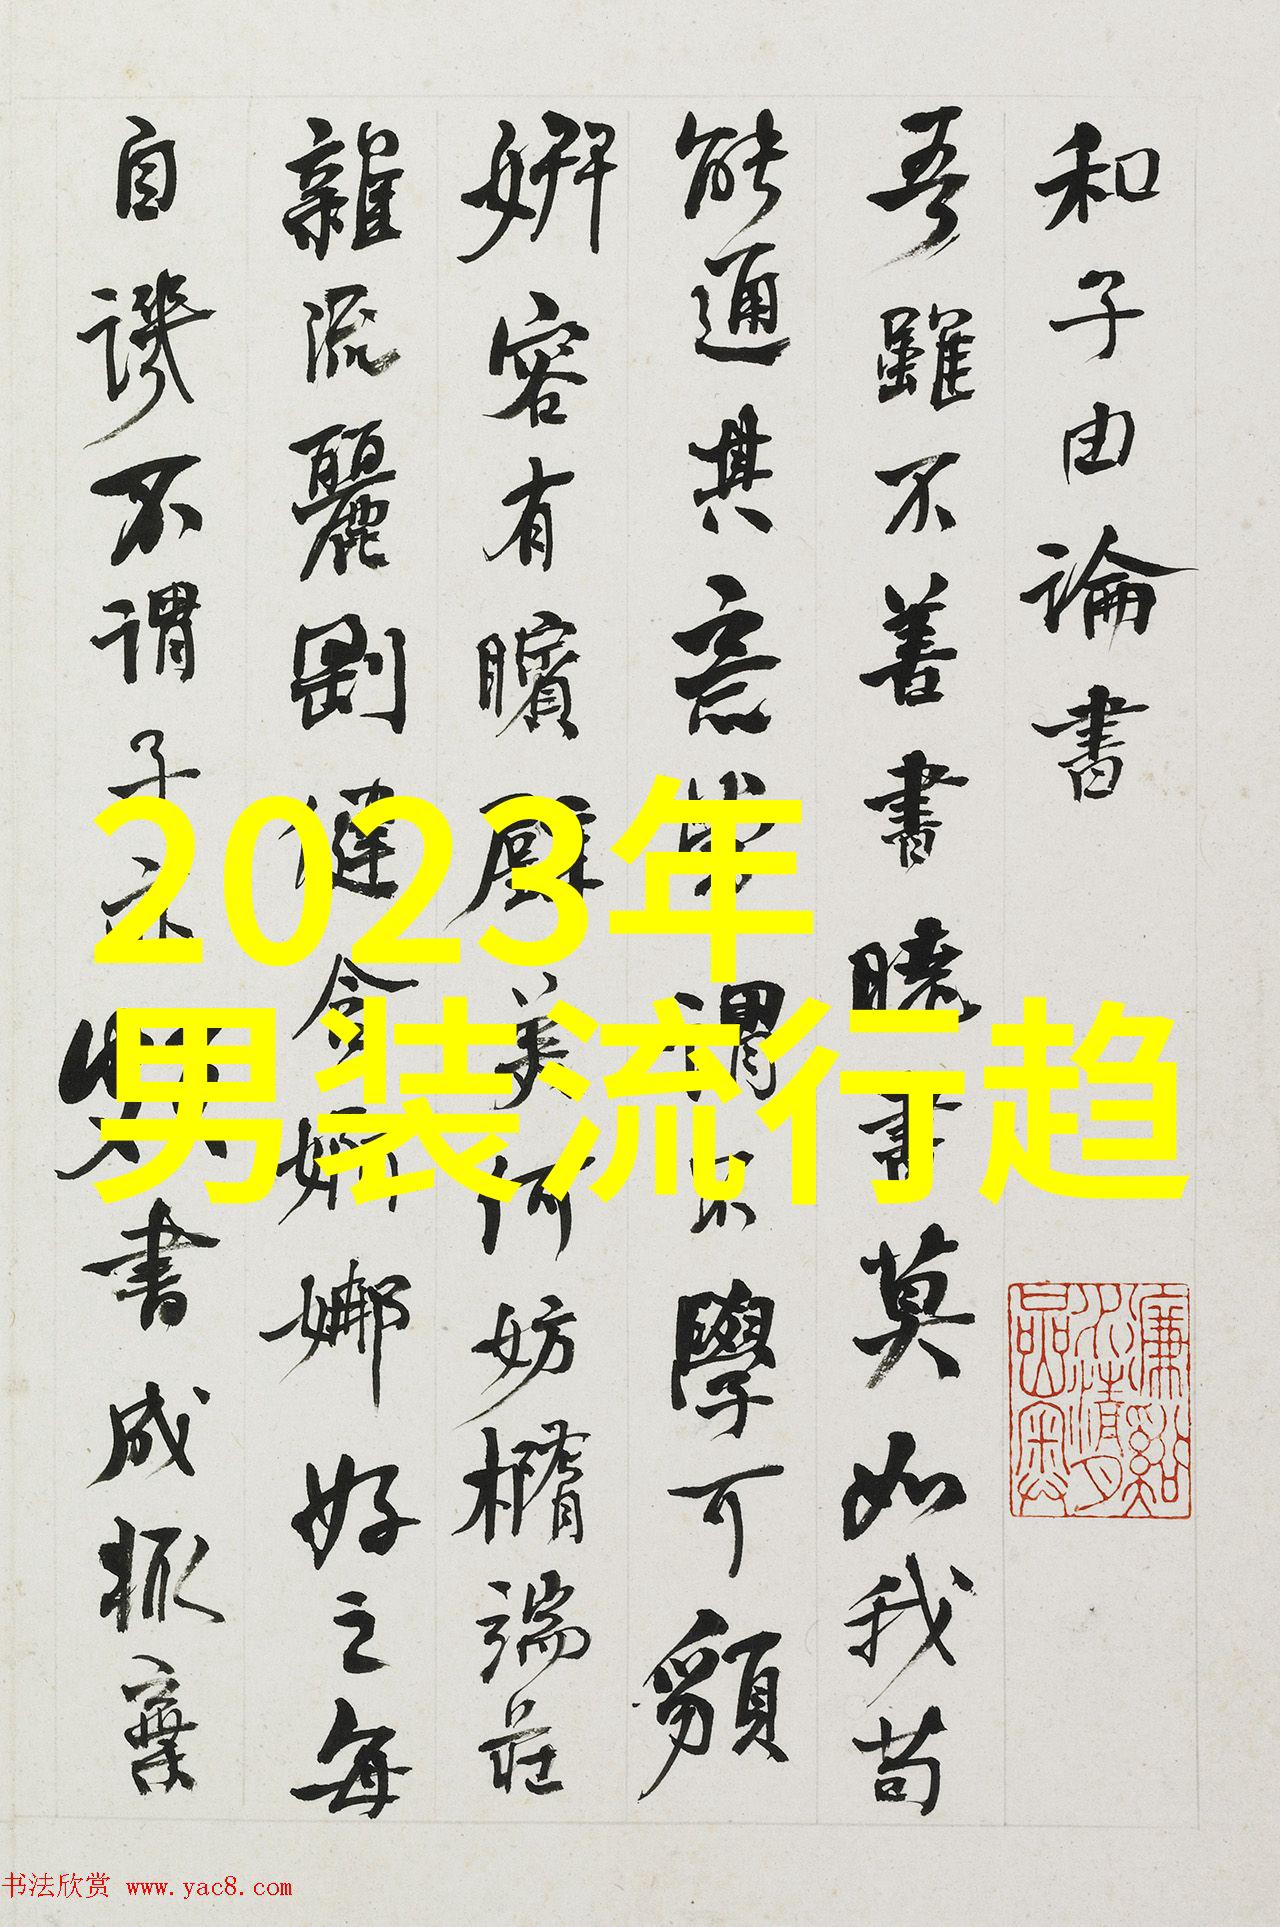 和子由論書
吾雖不善書曉書莫如我苟
能通其意常謂不學可䫉
妍容有矉璧美何妨橢端莊
雜流麗剛健含婀娜好之每
自譏不謂子亦頗書成輒棄
2023年
男装流行趋
书法欣赏 www.yac8.com